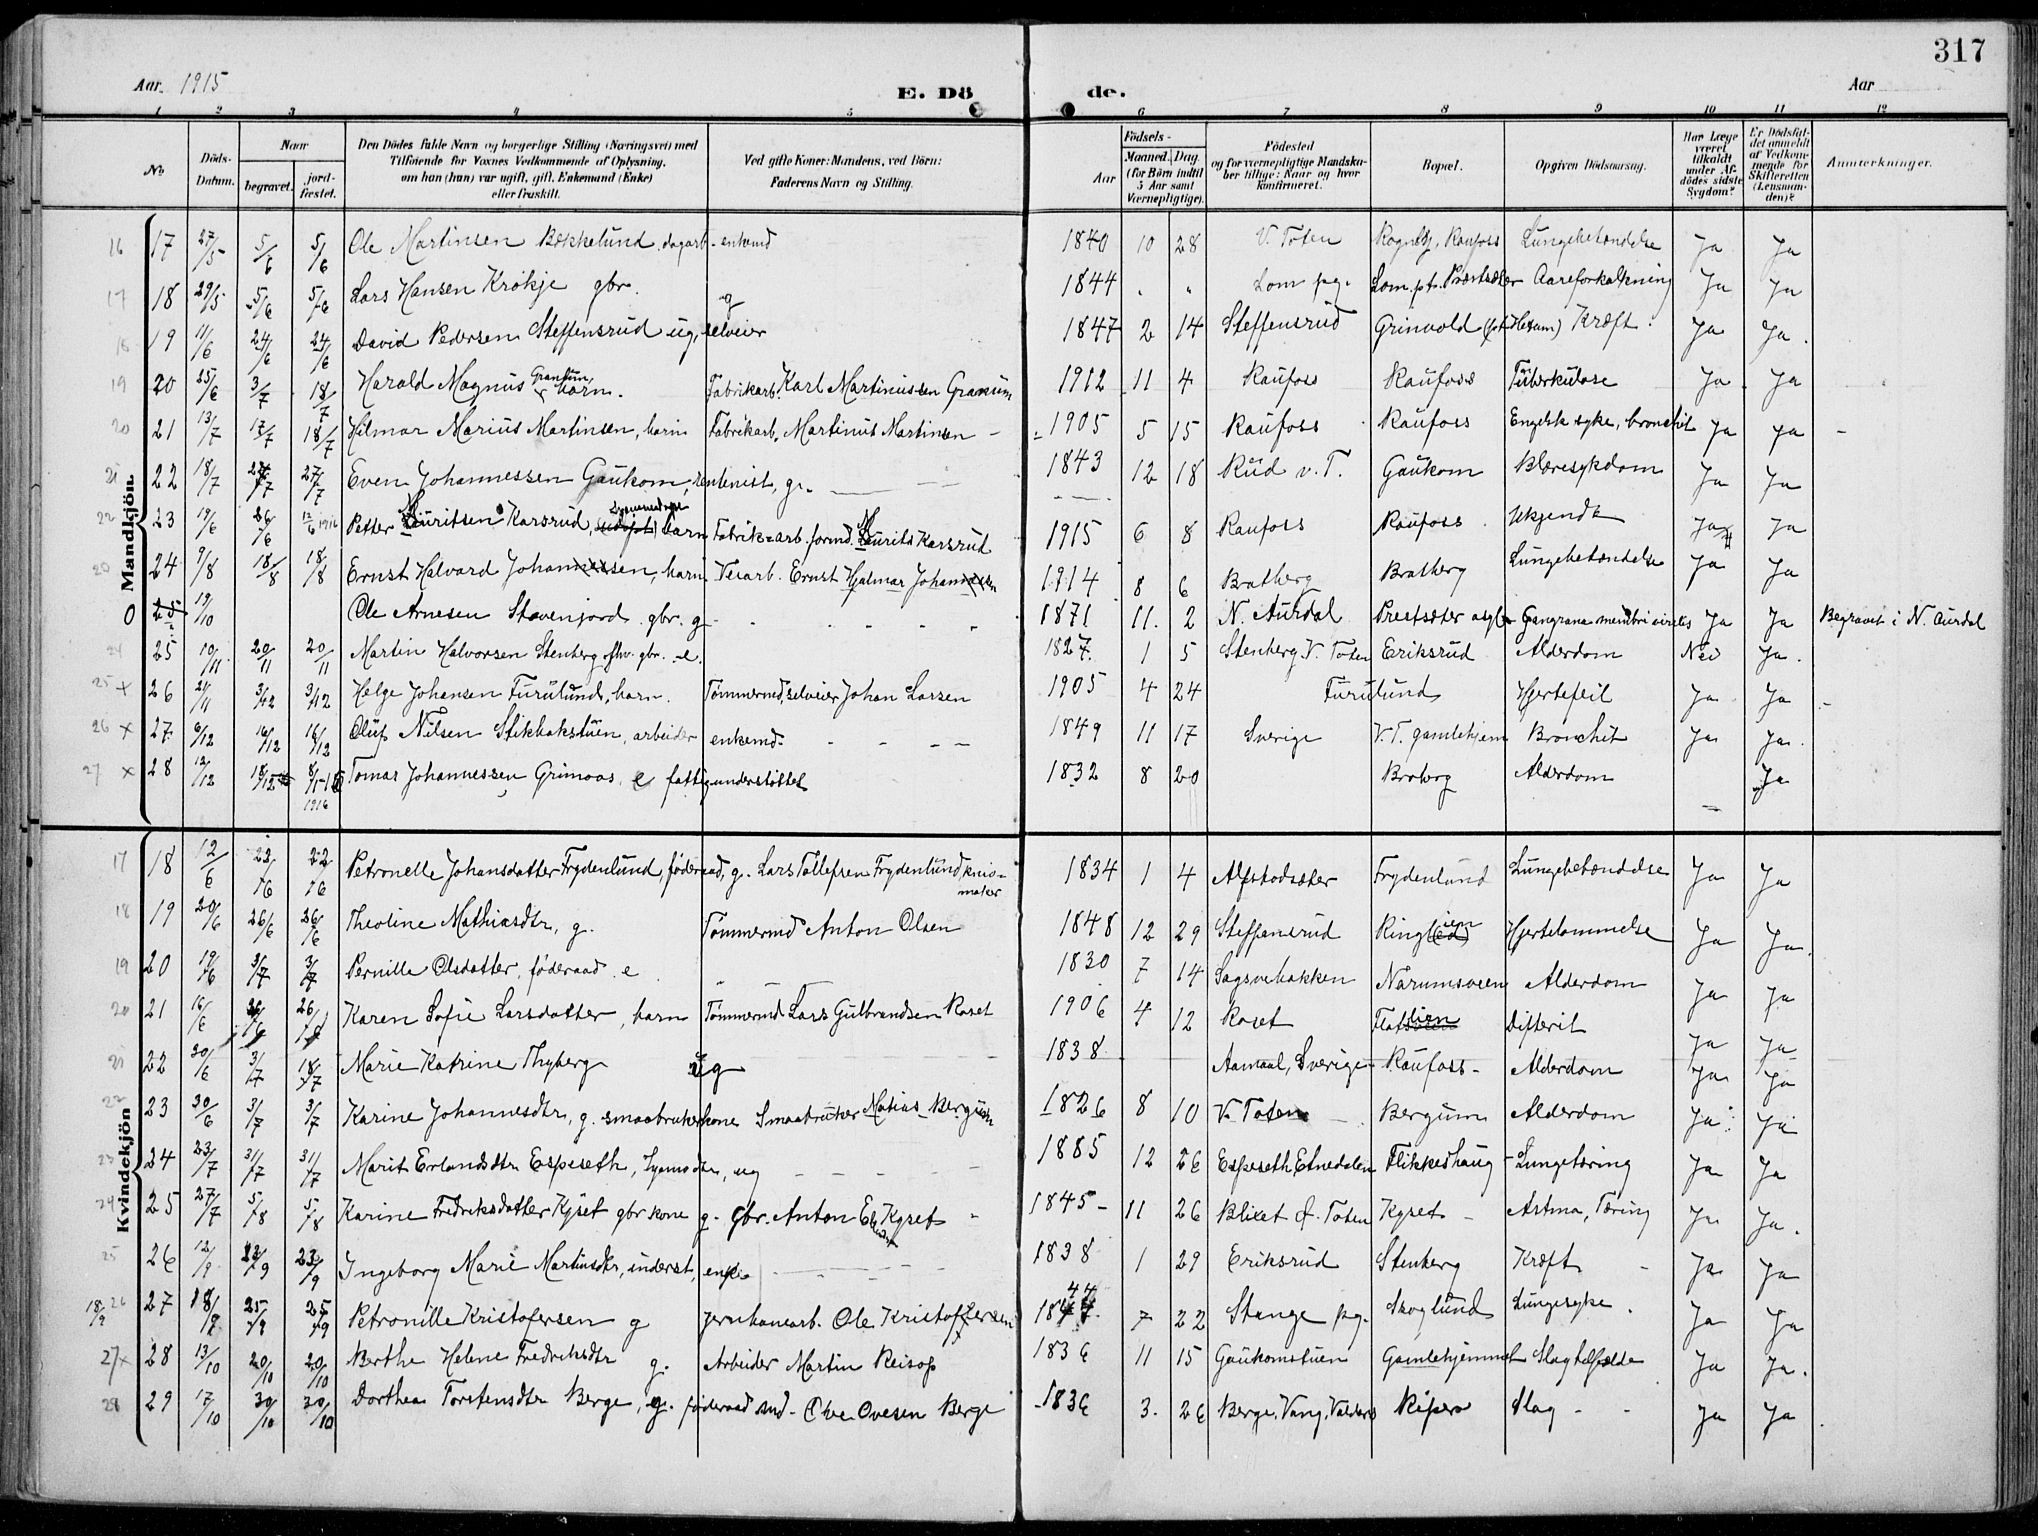 317
Aar. 1915
E. Dö
de.
Aar
1 2 3 4 5 6 7 8 9 10 11 12
No.
Döds-Datum.
Naar
begravet.
jord-fæstet.
Den Dödes fulde Navn og borgerlige Stilling (Næringsvei) med
Tilføiende for Voxnes Vedkommende af Oplysning,
om han (hun) var ugift, gift, Enkemand (Enke)
eller fraskilt.
Ved gifte Koner: Mandens, ved Börn:
Faderens Navn og Stilling.
Födsels-
Aar
Maaned. Dag.
(for Börn indtil 5 Aar samt Værnepligtige).
Födested
og for værnepligtige Mandskaber tillige: Naar og hvor konfirmeret.
Bopæl.
Opgiven Dödsaarsag.
Har Læge været tilkaldt under Afdödes sidste Sygdom?
Er Dödsfaldet anmeldt af Vedkommende for Skifteretten (Lensmanden)?
Anmerkninger.
Mandkjön.
16 17 27/5 5/6 5/6 Ole Martinsen Bækkelund, dagarb - enkemd 1840 10 28 V. Toten Raufoss Lungebetændelse Ja Ja
17 18 29/5 5/6 5/6 Lars Hansen Krökje gbr. g 1844 " " Lom pg. Lom. Aareforkalkning Ja Ja
18 19 11/6 24/6 24/6 David Pedersen Steffensrud ug, selveier 1847 2 14 Steffensrud Grinvold Kræft. Ja Ja.
19 20 25/6 3/7 18/7 Harald Magnus Granum barn. Fabrikarb. Karl Martinussen Granum 1912 11 4 Raufoss Raufoss Tuberkulose Ja Ja
20 21 13/7 17/7 18/7 Hilmar Marius Martinsen, barn Fabrikarb. Martinus Martinsen - 1905 5 15 Raufoss Raufoss Engelsk syke, bronchit Ja Ja -
21 22 18/7 27/7 27/7 Even Johannessen Gaukom, rentenist, g. 1843 12 18 Rud v. T. Gaukom Blæresykdom Ja Ja
22 23 19/6 26/6 12/6 1916 Petter Lauritsen Karsrud, barn Fabrik-arb. formd. Laurits Karsrud 1915 6 8 Raufoss Raufoss Ukjendt Ja Ja
20 24 9/8 18/8 18/8 Ernst Halvard Johannessen, barn Veiarb. Ernst Hjalmar Johannessen 1914 8 6 Bratberg Bratberg Lungebetændelse Ja Ja
0 25 19/10 Ole Arnesen Stavenjord. gbr. g 1871 11. 2 N. Aurdal Prestsæter Gangræna membri Ja Ja Begravet i N. Aurdal
24 25 10/11 20/11 20/11 Martin Halvorsen Stenberg gbr. e. 1827. 1 5 Stenberg V. Toten Eriksrud Alderdom Nei Ja.
25 x 26 21/11 3/12 3/12 Helge Johansen Furulund, barn. Tømmermd, selveier Johan Larsen 1905 4 24 Furulund Hjertefeil Ja Ja
26 x 27 6/12 16/12 16/12 Oluf Nilsen Stikbakstuen, arbeider enkemd. 1849 11 17 Sverige V.T. gamlehjem Bronchit Ja Ja.
27 x 28 12/12 18/12 1916 Tomas Johannessen Grimaas, e fattigunderstøttet 1832 8 20 Broberg Alderdom — Ja
Kvindekjön
17 18 12/6 23/6 22/6 Petronelle Johansdatter Frydenlund, føderaad, g. Lars Tollefsen Frydenlund knivmaker 1834 1 4 Alfstadsæter Frydenlund Lungebetændelse Ja Ja
18 19 20/6 26/6 26/6 Theoline Mathiasdtr, g. Tømmermd Anton Olsen 1848 12 29 Steffensrud Ringlien Hjertelammelse Ja Ja.
19 20 19/6 3/7 3/7 Pernille Olsdatter, føderaad e " 1830 7 14 Sagsvebakken Narumsveen Alderdom Ja Ja
20 21 16/6 26/6 26/6 Karen Sofie Larsdatter, barn Tømmermd Lars Gulbrandsen Roset 1906 4 12 Roset Flatlien Difterit Ja Ja
21 22 30/6 3/7 18/7 Marie Katrine Thyberg ug 1838 Aamaal, Sverige Raufoss - Alderdom Ja Ja
22 23 30/6 3/7 3/7 Karine Johannesdtr, g. smaabrukerkone Smaabruker Matias Bergum 1826 8 10 V. Toten Bergum Alderdom Ja Ja
23 24 23/7 31/7 31/7 Marit Erlandsdtr Espeseth, ug 1885 12 26 Espeseth Etnedalen Flikkeshaug - Lungetæring Ja Ja
24 25 27/7 5/8 5/8 Karine Fredriksdatter Kyset gbr kone g. gbr. Anton Kyset - 1845 - 11 26 Blixet Ø. Toten Kyset - Astma, Tæring Ja Ja.
25 26 12/9 22/9 23/9 Ingeborg Marie Martinsdtr, inderst, enke 1838 1 29 Eriksrud Stenberg Kræft - Ja Ja
18/9 26 27 18/9 25/9 25/9 Petronille Kristofersen g Jernbanearb. Ole Kristoffersen 1844 7 22 Stange pg. Skoglund Lungesyke. Ja Ja
27 x 28 13/10 20/10 20/10 Berthe Helene Fredriksdtr g. Arbeider Martin Reisop 1836 11 15 Gaukomstuen Gamlehjemmet Slagtilfælde Ja Ja.
28 29 17/10 30/10 30/10 Dorthea Torstensdtr Berge, g. føderaadsmd - Ole Ovesen Berge 1836 3. 26 Berge, Vang, Valdres Ripero Slag - - Ja Ja